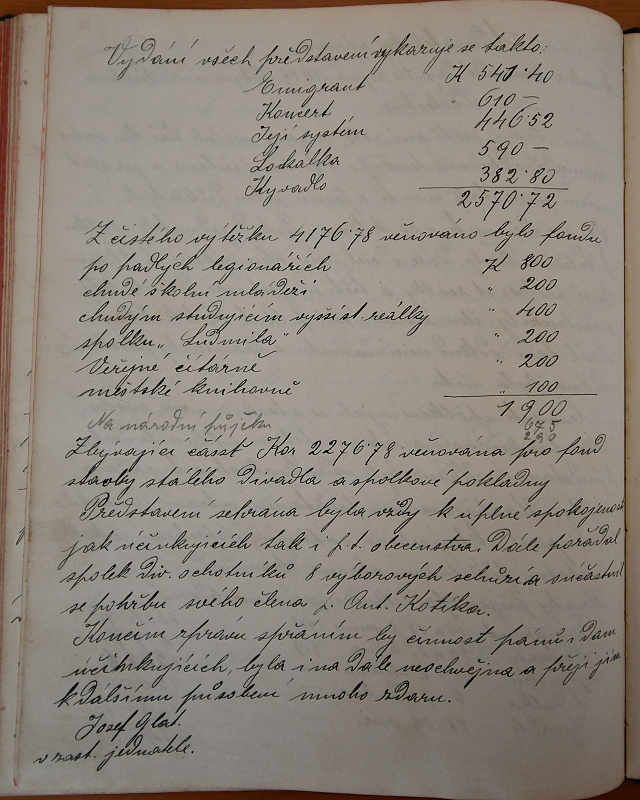 Vydání všech představení vykazuje se takto:
Emigrant K 541·40
Koncert " 610 —
Její systém 446·52
Lokalka 590 —
Kyvadlo 382·80
2570·72
Z čistého výtěžku 4176·78 věnováno bylo fondu
po padlých legionářích K 800
chudé školní mládeži " 200
chudým studujícím vyšší st. reálky " 400
spolku „Ludmila" " 200
Veřejné čítárně " 200
městské knihovně " 100
1900
Na národní půjčku 675
290
Zbývající část Kor 2276·78 věnována pro fond
stavby stálého Divadla a spolkové pokladny
Představení sehrána byla vždy k úplné spokojenosti
jak účinkujících tak i p. t. obecenstva. Dále pořádal
spolek div. ochotníků 8 výborových schůzí a súčastnil
se pohřbu svého člena p. Ant. Kotíka.
Končím zprávu s přáním by činnost pánů i dam
účinkujících, byla i na dále neochvějna a přeji jim
k dalšímu působení mnoho zdaru.
Josef Glat.
v zast. jednatele.